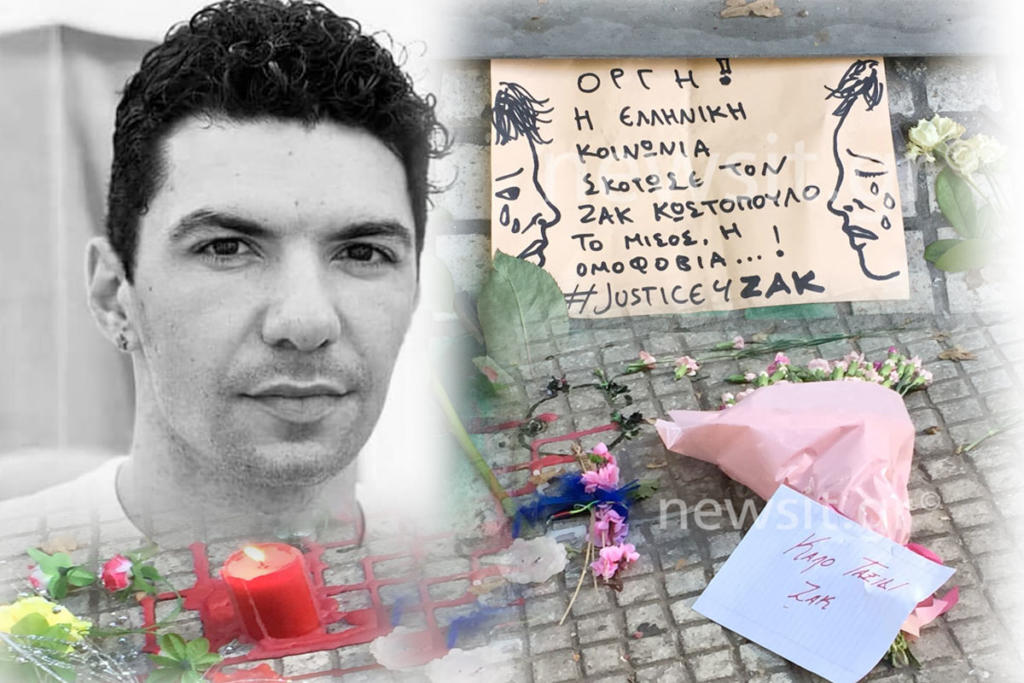 ΟΡΓΗ!
Η ΕΛΛΗΝΙΚΗ
ΚΟΙΝΩΝΙΑ
ΣΚΟΤΩΣΕ ΤΟΝ
ΖΑΚ ΚΩΣΤΟΠΟΥΛΟ
ΤΟ ΜΙΣΟΣ, Η
ΟΜΟΦΟΒΙΑ...!
#JUSTICE4ZAK
newsit.gr
newsit.gr ©
ΚΑΛΟ ΤΑΞΙΔΙ
ΖΑΚ